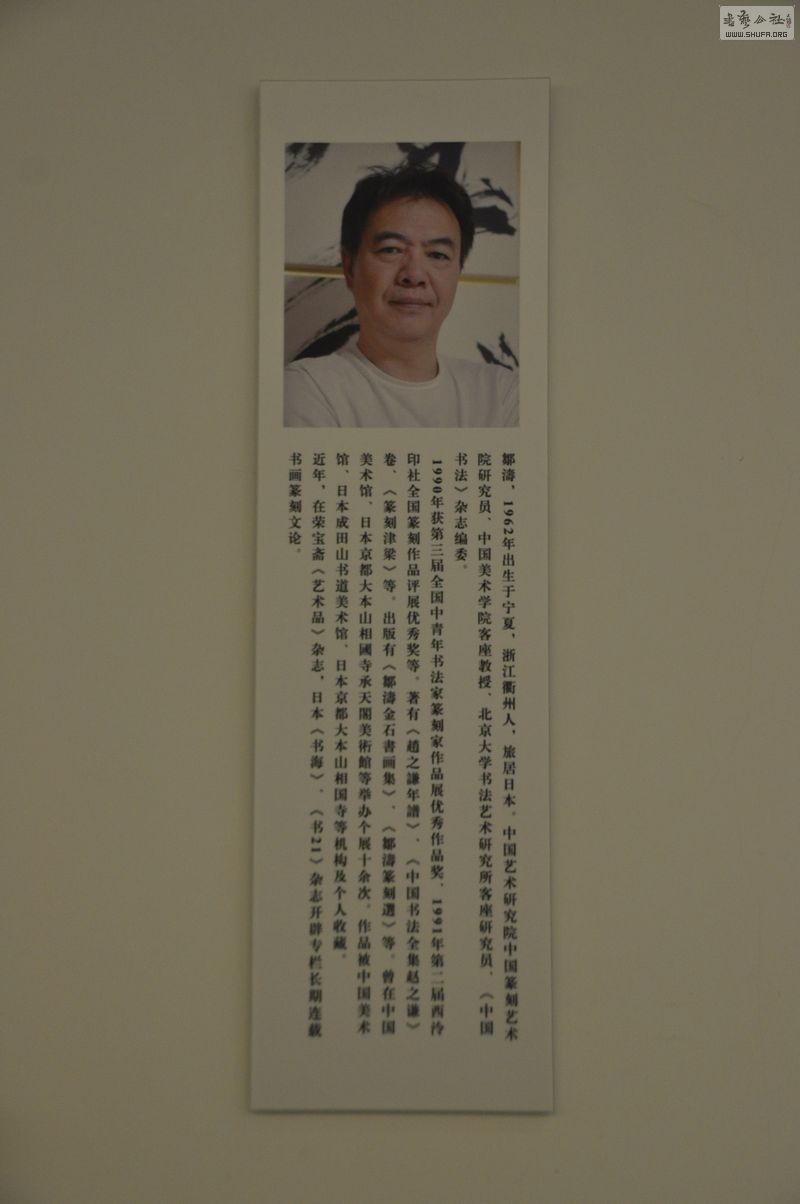 書藝公社
WWW.SHUFA.ORG
鄒濤，1962年出生于宁夏，浙江衢州人，旅居日本。中国艺术研究院中国篆刻艺术
院研究员、中国美术学院客座教授、北京大学书法艺术研究所客座研究员、《中国
书法》杂志编委。
1990年获第三届全国中青年书法家篆刻家作品展优秀作品奖、1991年第二届西泠
印社全国篆刻作品评展优秀奖等。著有《趙之謙年譜》、《中国书法全集赵之谦》
卷、《篆刻津梁》等。出版有《鄒濤金石書画集》、《鄒濤篆刻選》等。曾在中国
美术馆、日本京都大本山相國寺承天閣美術館等举办个展十余次。作品被中国美术
馆、日本成田山书道美术馆、日本京都大本山相国寺等机构及个人收藏。
近年，在荣宝斋《艺术品》杂志，日本《书海》、《书21》杂志开辟专栏长期连载
书画篆刻文论。